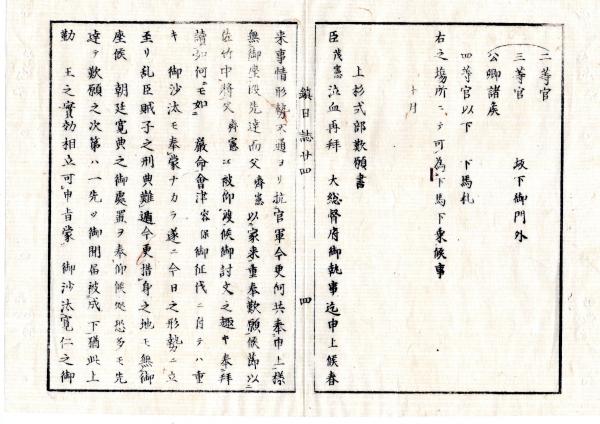 二等官
三等官　坂下御門外
公卿諸矦
四等官以下　下馬札
右之場所ニテ可為下馬下乗候事
十月
上杉式部歎願書
臣茂憲泣血再拜　大総督府御執事迄申上候春
鎮日誌廿四　四
来事情形勢不通ヨリ抗官軍今更何共奉申上様
無御座段先達而父齊憲以家来重奉歎願候節以
佐竹中将父齊憲江被仰渡候御討文之趣キ奉拜
讀如何ニモ如厳命會津容保御征伐ニ付テハ重
キ御沙汰モ奉蒙ナカラ遂ニ今日之形勢ニ立
至リ乱臣賊子之刑典難遁今更措身之地モ無御
座候　朝廷寛典之御處置ヲ奉仰候處恐多モ先
達テ歎願之次第ハ一先ッ御聞届被成下猶此上
勤　王之實効相立可申旨蒙　御沙汰寛仁之御